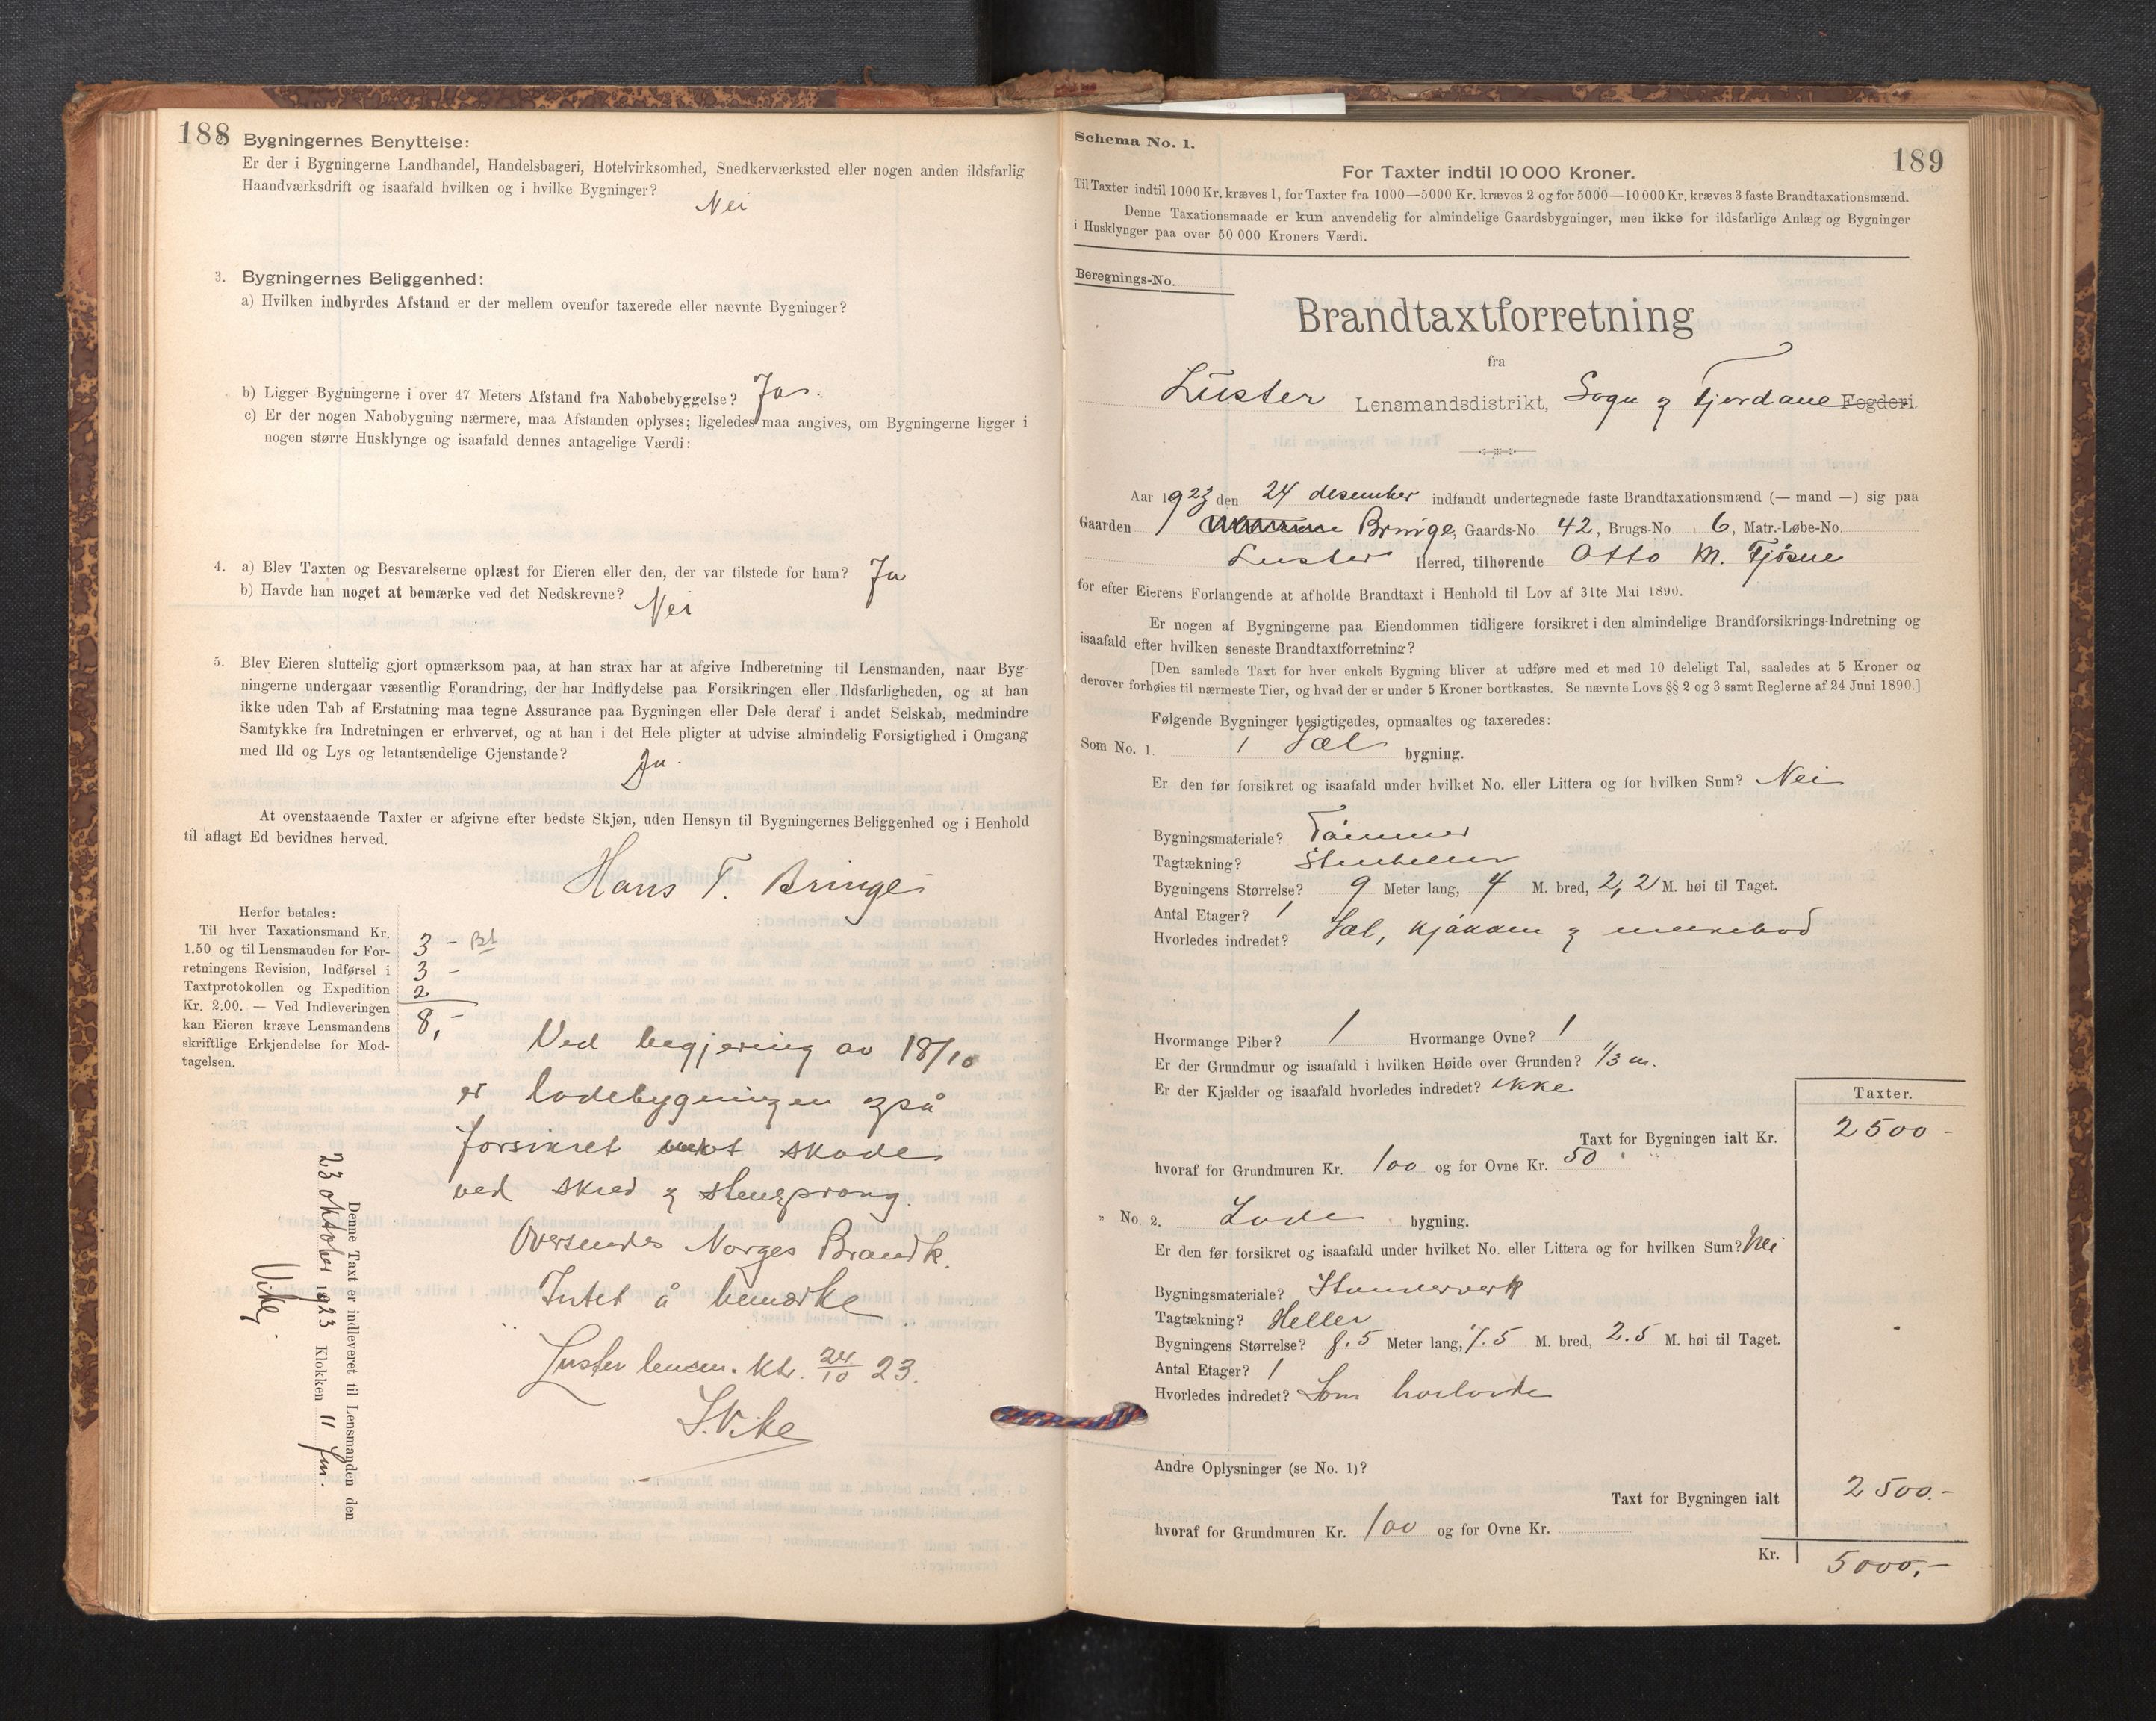 188
2. Bygningernes Benyttelse:
Er der i Bygningerne Landhandel, Handelsbageri, Hotelvirksomhed, Snedkerværksted eller nogen anden ildsfarlig
Haandværksdrift og isaafald hvilken og i hvilke Bygninger?
Nei
3. Bygningernes Beliggenhed:
a) Hvilken indbyrdes Afstand er der mellem ovenfor taxerede eller nævnte Bygninger?
b) Ligger Bygningerne i over 47 Meters Afstand fra Nabobebyggelse? Ja.
c) Er der nogen Nabobygning nærmere, maa Afstanden oplyses; ligeledes maa angives, om Bygningerne ligger i
nogen større Husklynge og isaafald dennes antagelige Værdi:
4. a) Blev Taxten og Besvarelserne oplæst for Eieren eller den, der var tilstede for ham? Ja
b) Havde han noget at bemærke ved det Nedskrevne? Nei
5. Blev Eieren sluttelig gjort opmærksom paa, at han strax har at afgive Indberetning til Lensmanden, naar Byg-
ningerne undergaar væsentlig Forandring, der har Indflydelse paa Forsikringen eller Ildsfarligheden, og at han
ikke uden Tab af Erstatning maa tegne Assurance paa Bygningen eller Dele deraf i andet Selskab, medmindre
Samtykke fra Indretningen er erhvervet, og at han i det Hele pligter at udvise almindelig Forsigtighed i Omgang
med Ild og Lys og letantændelige Gjenstande? Ja.
At ovenstaaende Taxter er afgivne efter bedste Skjøn, uden Hensyn til Bygningernes Beliggenhed og i Henhold
til aflagt Ed bevidnes herved.
Hans T. Bringe
Herfor betales:
Til hver Taxationsmand Kr.
1.50 og til Lensmanden for For-
retningens Revision, Indførsel i
Taxtprotokollen og Expedition
Kr. 2.00. — Ved Indleveringen
kan Eieren kræve Lensmandens
skriftlige Erkjendelse for Mod-
tagelsen.
3 - Bet
3 -
2
8,-
Ved begjering av 18/10
er lodebygningen også
forsikret mot skade
ved skred og stensprang.
Oversendes Norges Brandk.
Intet å bemerke
Luster lensm. ktr. 24/10 23.
S. Vike
Denne Taxt er indleveret til Lensmanden den
23 oktober 1923 Klokken 11 fm.
Vike
Schema No. 1.
189
For Taxter indtil 10 000 Kroner.
Til Taxter indtil 1000 Kr. kræves 1, for Taxter fra 1000—5000 Kr. kræves 2 og for 5000—10 000 Kr. kræves 3 faste Brandtaxationsmænd.
Denne Taxationsmaade er kun anvendelig for almindelige Gaardsbygninger, men ikke for ildsfarlige Anlæg og Bygninger
i Husklynger paa over 50 000 Kroners Værdi.
Beregnings-No.
Brandtaxtforretning
fra
Luster Lensmandsdistrikt, Sogn og Fjordane Fogderi.
Aar 1923 den 24 desember indfandt undertegnede faste Brandtaxationsmænd (— mand —) sig paa
Gaarden Bringe, Gaards-No. 42, Brugs-No. 6, Matr.-Løbe-No.
Luster Herred, tilhørende Otto M. Fjøsne
for efter Eierens Forlangende at afholde Brandtaxt i Henhold til Lov af 31te Mai 1890.
Er nogen af Bygningerne paa Eiendommen tidligere forsikret i den almindelige Brandforsikrings-Indretning og
isaafald efter hvilken seneste Brandtaxtforretning?
[Den samlede Taxt for hver enkelt Bygning bliver at udføre med et med 10 deleligt Tal, saaledes at 5 Kroner og
derover forhøies til nærmeste Tier, og hvad der er under 5 Kroner bortkastes. Se nævnte Lovs §§ 2 og 3 samt Reglerne af 24 Juni 1890.]
Følgende Bygninger besigtigedes, opmaaltes og taxeredes:
Som No. 1. 1 Sæl bygning.
Er den før forsikret og isaafald under hvilket No. eller Littera og for hvilken Sum? Nei
Bygningsmateriale? Tømmer
Tagtækning? Stenheller
Bygningens Størrelse? 9 Meter lang, 4 M. bred, 2,2 M. høi til Taget.
Antal Etager? 1
Hvorledes indredet? Sæl, kjøkken og melkebod
Hvormange Piber? 1 Hvormange Ovne? 1
Er der Grundmur og isaafald i hvilken Høide over Grunden? 1/3 m.
Er der Kjælder og isaafald hvorledes indredet? ikke
Taxter.
Taxt for Bygningen ialt Kr. 2500 -
hvoraf for Grundmuren Kr. 100 og for Ovne Kr. 50
" No. 2. Lode bygning.
Er den før forsikret og isaafald under hvilket No. eller Littera og for hvilken Sum? Nei
Bygningsmateriale? Stenderverk
Tagtækning? Heller
Bygningens Størrelse? 8.5 Meter lang, 7.5 M. bred, 2.5 M. høi til Taget.
Antal Etager? 1
Hvorledes indredet? Som
Andre Oplysninger (se No. 1)?
Taxt for Bygningen ialt 2500.-
hvoraf for Grundmuren Kr. 100 og for Ovne Kr.
Kr. 5000,-